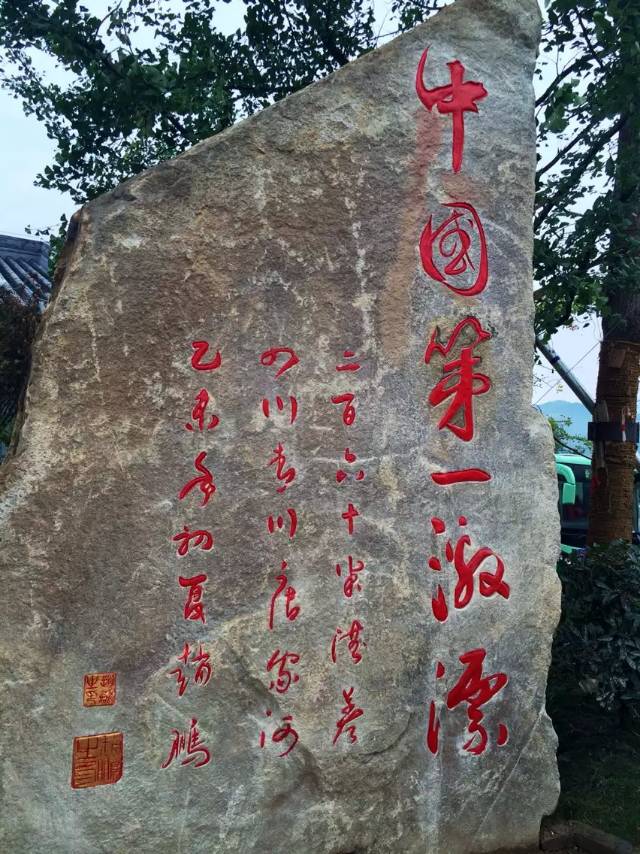 中国第一激漂
二百六十米满差
四川青川唐家河
乙未年初夏赵鹏